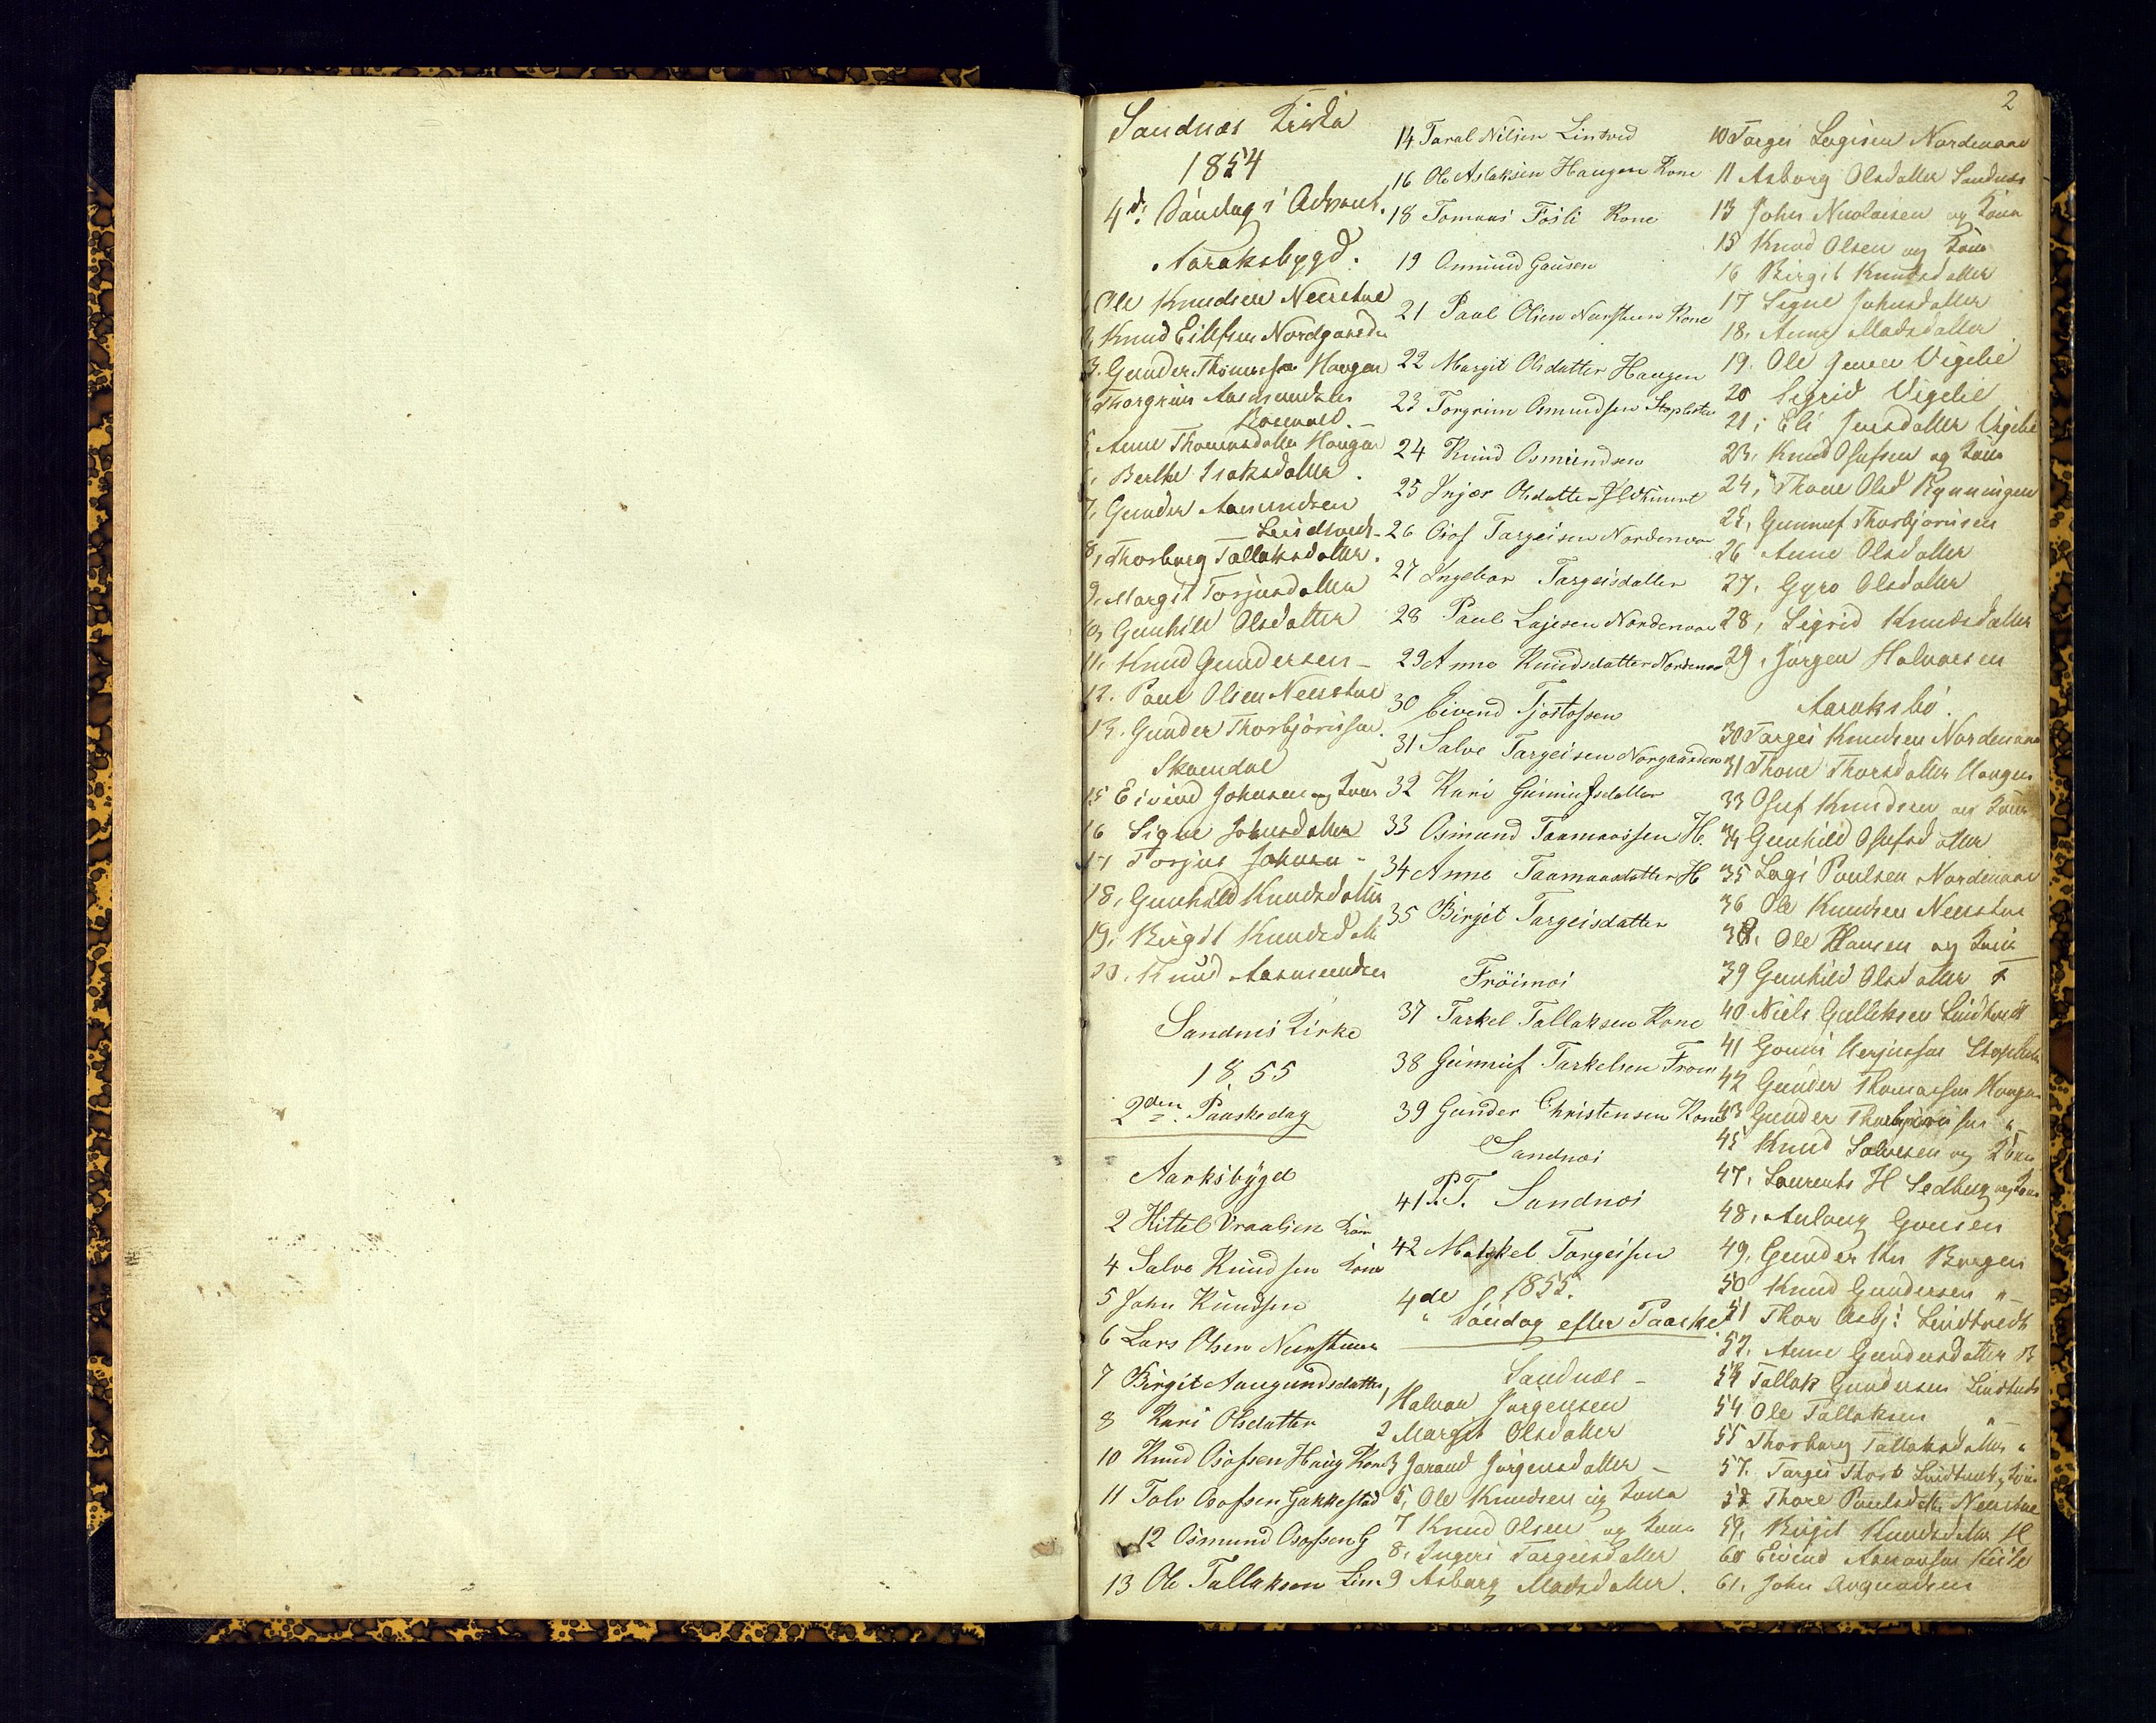 2
Sandnæs Kirke
1854
4d: Søndag i Advent.
Aaraksbygd.
Ole Knudsen Neerstue
Knud Eilefsen Nordgarden
3. Gunder Thomesen Haugen
Thorgrim Aasmundsen
5, Anne Thomasdatter Haugen
Berthe Isaksdatter.
7, Gunder Aamundsen
Lindtvedt
8, Thorborg Tallaksdatter.
9, Margit Torjusdatter
10, Gunhild Olsdatter
11. Knud Gundersen
12. Paul Olsen Neerstue
13. Gunder Thorbjørnsen.
15 Eivind Johnsen og Kone
16 Signe Johnsdatter
17 Torjus Johnsen
18, Gunhild Knudsdatter
19, Birgit Knudsd
20. Knud Aasmundsen
Sandnæs Kirke
1855
2den Paaskedag
Aarksbygd
2 Kittel Vraalsen Kone
4 Salve Knudsen Kone
5 John Knudsen
6 Lars Olsen Neerstuen
7 Birgit Aangundsdatter
8 Kari Olsdatter
10 Knud Osofsen Haug Kone
11 Tolv Osofsen Gakkestad
12 Osmund Osofsen G
13 Ole Tallaksen Lin
14 Taral Nilsen Lintved
16 Ole Aslaksen Haugen Kone
18 Tomas Fosli Kone
19 Osmund Gousen
21 Paul Olsen Nerstuen Kone
22 Margit Olsdatter Haugen
23 Torgrim Osmundsen
24 Knud Osmundsen
25 Injer Olsdatter
26 Osof Targeisen Nordenaa
27 Ingebor Targeisdatter
28 Paul Lajesen Nordenaa
29 Anne Knudsdatter Nordenaa
30 Eivend Tjostofsen
31 Salve Targeisen Norgaarden
32 Kari Gunnufsdatter
33 Osmund Taamaassen H.
34 Anne Taamaasdatter H
35 Birgit Targeisdatter
Frøinæs
37 Tarkel Tallaksen Kone
38 Gunnuf Tarkelsen Frøn
39 Gunder Christensen Kone
Sandnæs
41 P.T. Sandnæs
42 Targeisen
1855.
4de Søndag efter Paaske
Sandnæs
1 Halvor Jørgensen
2 Margit Olsdatter
3 Jorand Jørgensdatter
5, Ole Knudsen og Kona
7 Knud Olsen og Kona
8, Ingeri Targeisdatter
9 Asborg Madsdatter.
10 Targei Lagisen Nordenaae
11 Asborg Olsdatter Sandnæs
13 John Nicolaisen og Kona
15 Knud Olsen og Kone
16 Birgit Knudsdatter
17 Signe Johnsdatter
18, Anne Madsdatter
19. Ole Jensen Vigelie
20 Sigrid Vigelie
21, Eli Jensdatter Vigelie
23, Knud Olufsen og Kone
24, Thone Olsd Rynningen
25, Gunnuf Thorbjørnsen
26 Anne Olsdatter
27, Gyro Olsdatter
28, Sigrid Knudsdatter
29, Jørgen Halvorsen
Aaraksbø.
30 Targei Knudsen Nordenaae
31 Thone Thorsdatter Haugen
33 Osuf Knudsen og Kone
34 Gunhild Osufsdatter
35 Lagi Poulsen Nordenaae
36 Ole Knudsen Neerstue
38, Ole Hansen og Kone
39 Gunhild Olsdatter
40 Niels Gulleksen Lindtvedt
41 Gouni
42 Gunder Thomassen Haugen
43 Gunder Thorbjørnsen "
45 Knud Salvesen og Kone
47, Laurents H Sedberg og Kone
48, Aslaug Gousen
49, Gunder Borgen
50 Knud Gundersen "
51 Thor Asbj: Lindtvedt
52. Anne Gundersdatter B
53 Tallak Gundersen Lindtvedt
54 Ole Tallaksen "
55 Thorborg Tallaksdatter "
57. Targei Lindtvedt og Kone
58 Thore Poulsdatter Neerstue
59, Birgit Knudsdatter H
60 Eivind
61. John